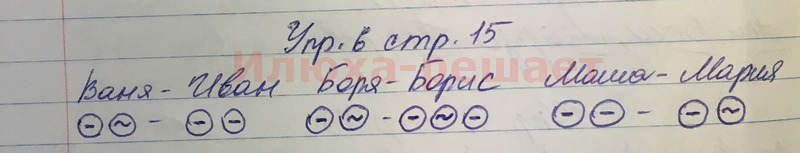 Упр. 6 стр. 15
Илюха-решает
Ваня - Иван Боря - Борис Маша - Мария
(-) (~) - (-) (-) (-) (~) - (-) (~) (-) (-) (-) - (-) (~)